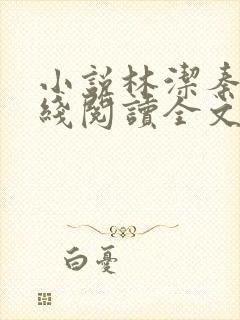 小説林潔秦
綫閱讀全文
白憂